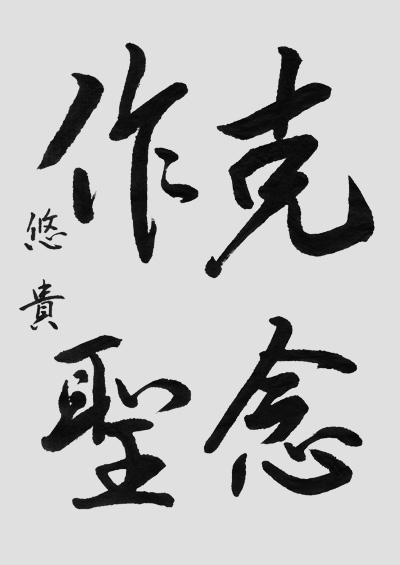 克念
作聖
悠貴